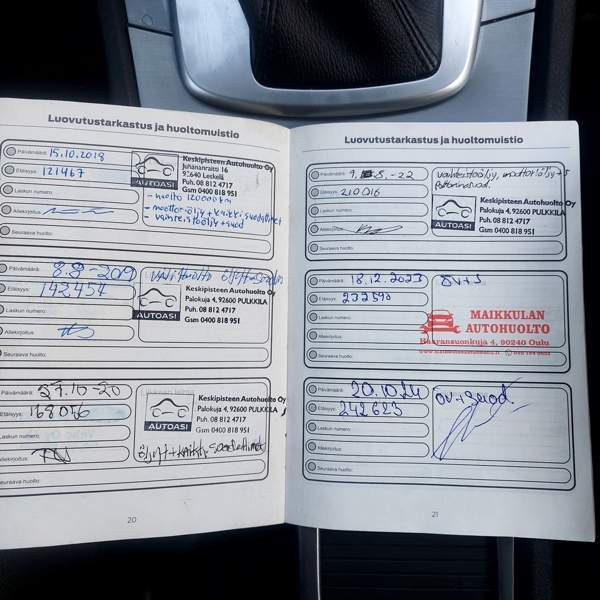 Luovutustarkastus ja huoltomuistio
Päivämäärä: 15.10.2018
Etäisyys: 121467
Laskun numero:
Allekirjoitus:
Seuraava huolto:
AUTOASI
Keskipisteen Autohuolto Oy
Juhananraitti 16
Puh. 08 812 4717
Gsm 0400 818 951
- huolto 120000 km
- moottoriöljy + kaikki suodattimet
- vaihteistoöljy + suod
Päivämäärä: 8.8-2019
Etäisyys: 142454
Laskun numero:
Allekirjoitus:
Seuraava huolto:
AUTOASI
Keskipisteen Autohuolto Oy
Palokuja 4, 92600 PULKKILA
Puh. 08 812 4717
Gsm 0400 818 951
10-20
Etäisyys:
Laskun numero:
Allekirjoitus:
Seuraava huolto:
AUTOASI
Keskipisteen Autohuolto Oy
Palokuja 4, 92600 PULKKILA
Gsm 0400 818 951
20
Luovutustarkastus ja huoltomuistio
Päivämäärä: -22
Etäisyys: 210016
Laskun numero:
Allekirjoitus:
Seuraava huolto:
vaihteistoöljy, moottoriöljy+s
AUTOASI
Keskipisteen Autohuolto Oy
Palokuja 4, 92600 PULKKILA
Gsm 0400 818 951
Päivämäärä: 18.12.2023
Etäisyys: 232590
Laskun numero:
Allekirjoitus:
Seuraava huolto:
ÖV+S
MAIKKULAN
AUTOHUOLTO
4, 90240 Oulu
Päivämäärä: 20.10.24
Etäisyys: 242625
Laskun numero:
Allekirjoitus:
Seuraava huolto:
öv+suod.
21